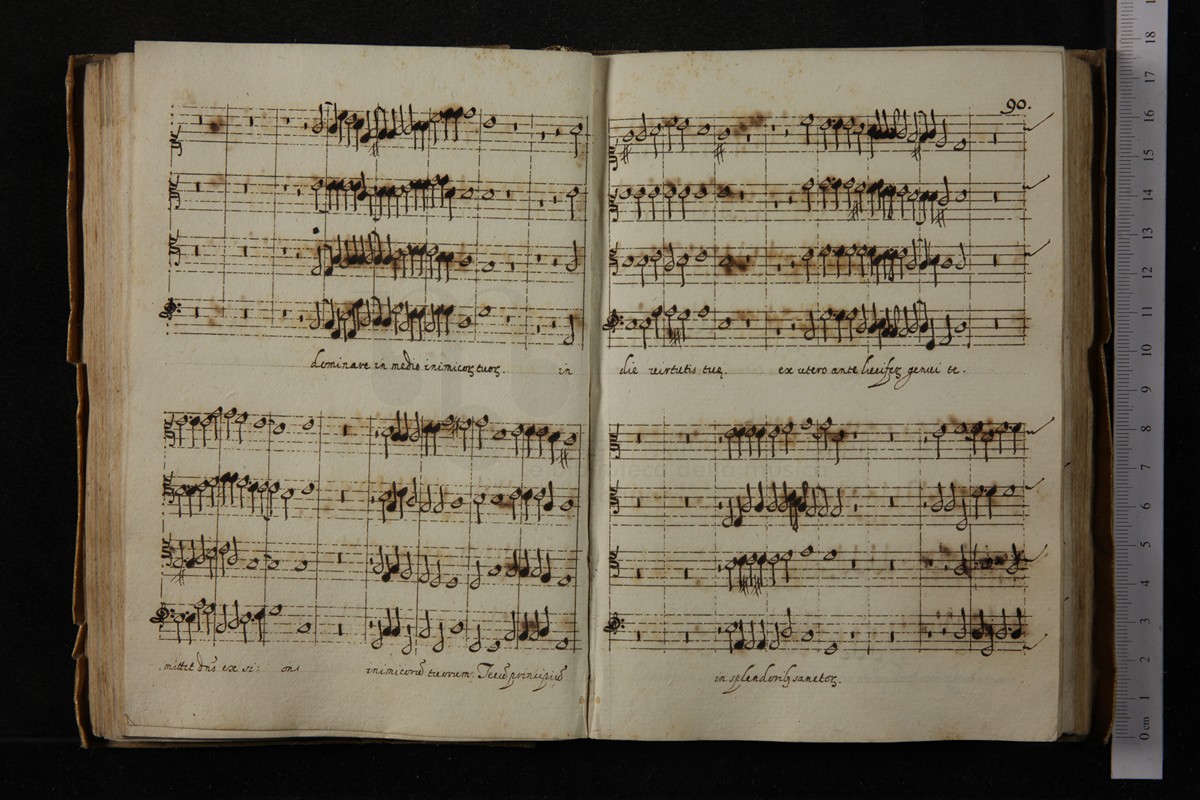 90.
dominare in medio inimicorꝝ tuorꝝ. in
mittet dn̄s ex si: on
inimicorū tuorum. Tecū principiū
die virtutis tuę. ex utero ante genui te.
in splendoribꝫ sanctorꝝ.
e discoteca della musica
18
17
16
15
14
13
12
11
10
9
8
7
6
5
4
3
2
1
0 cm